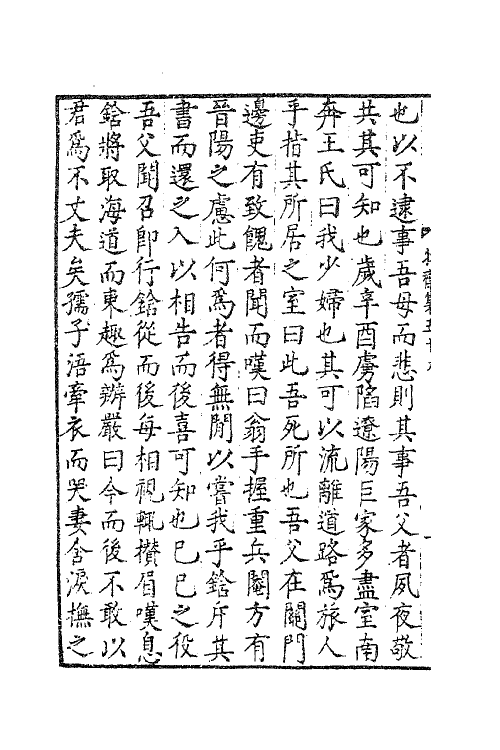 也以不逮事吾母而悲則其事吾父者夙夜敬
共其可知也歲辛酉虜陷遼陽巨家多盡室南
奔王氏曰我少婦也其可以流離道路爲旅人
手指其所居之室曰此吾死所也吾父在關門
邊吏有致餽者聞而嘆曰翁手握重兵閹方有
晉陽之慮此何爲者得無閒以嘗我乎鎗斥其
書而還之入以相告而後喜可知也已巳之役
吾父聞召卽行鎗從而後每相視輒攢眉嘆息
鎗將取海道而東趣爲辦嚴曰今而後不敢以
君爲不丈夫矣孺子浯牽衣而哭妻含淚撫之